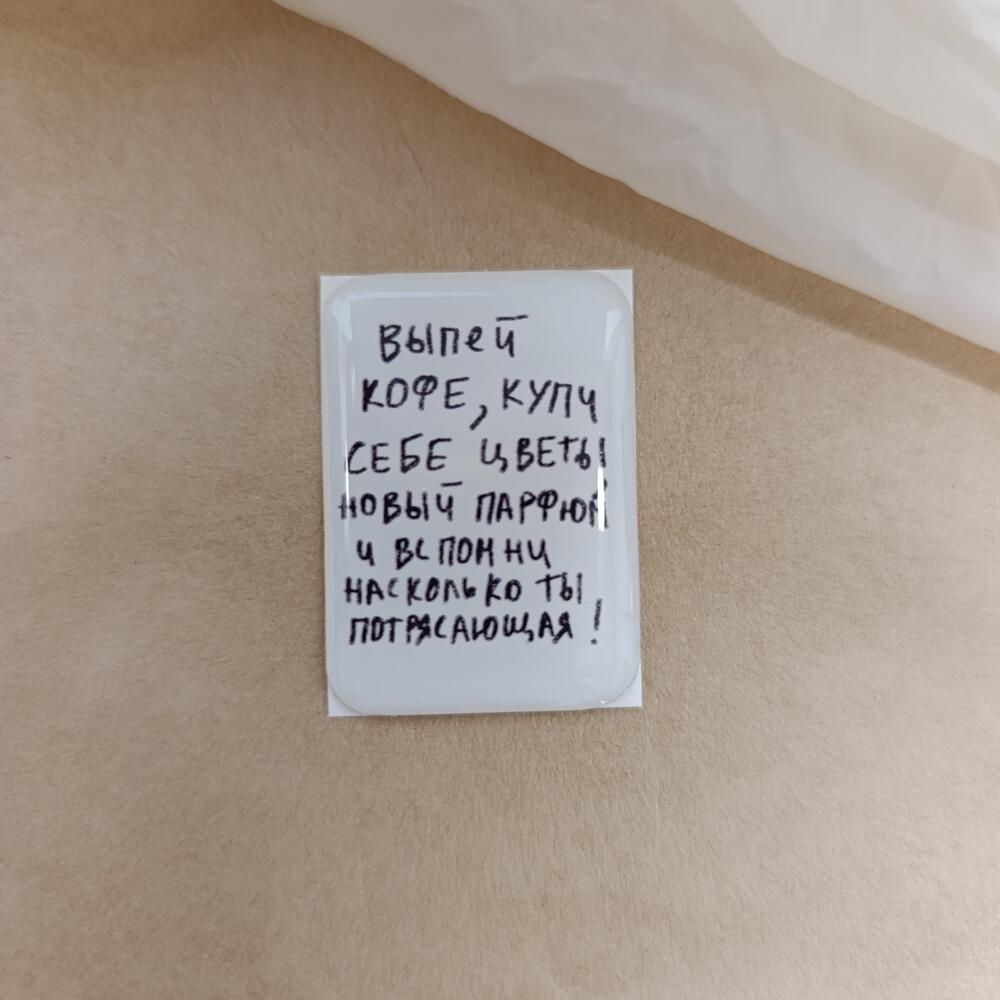 Выпей
КОФЕ, КУПИ
СЕБЕ ЦВЕТЫ
НОВЫЙ ПАРФЮМ
И ВСПОМНИ
НАСКОЛЬКО ТЫ
ПОТРЯСАЮЩАЯ!